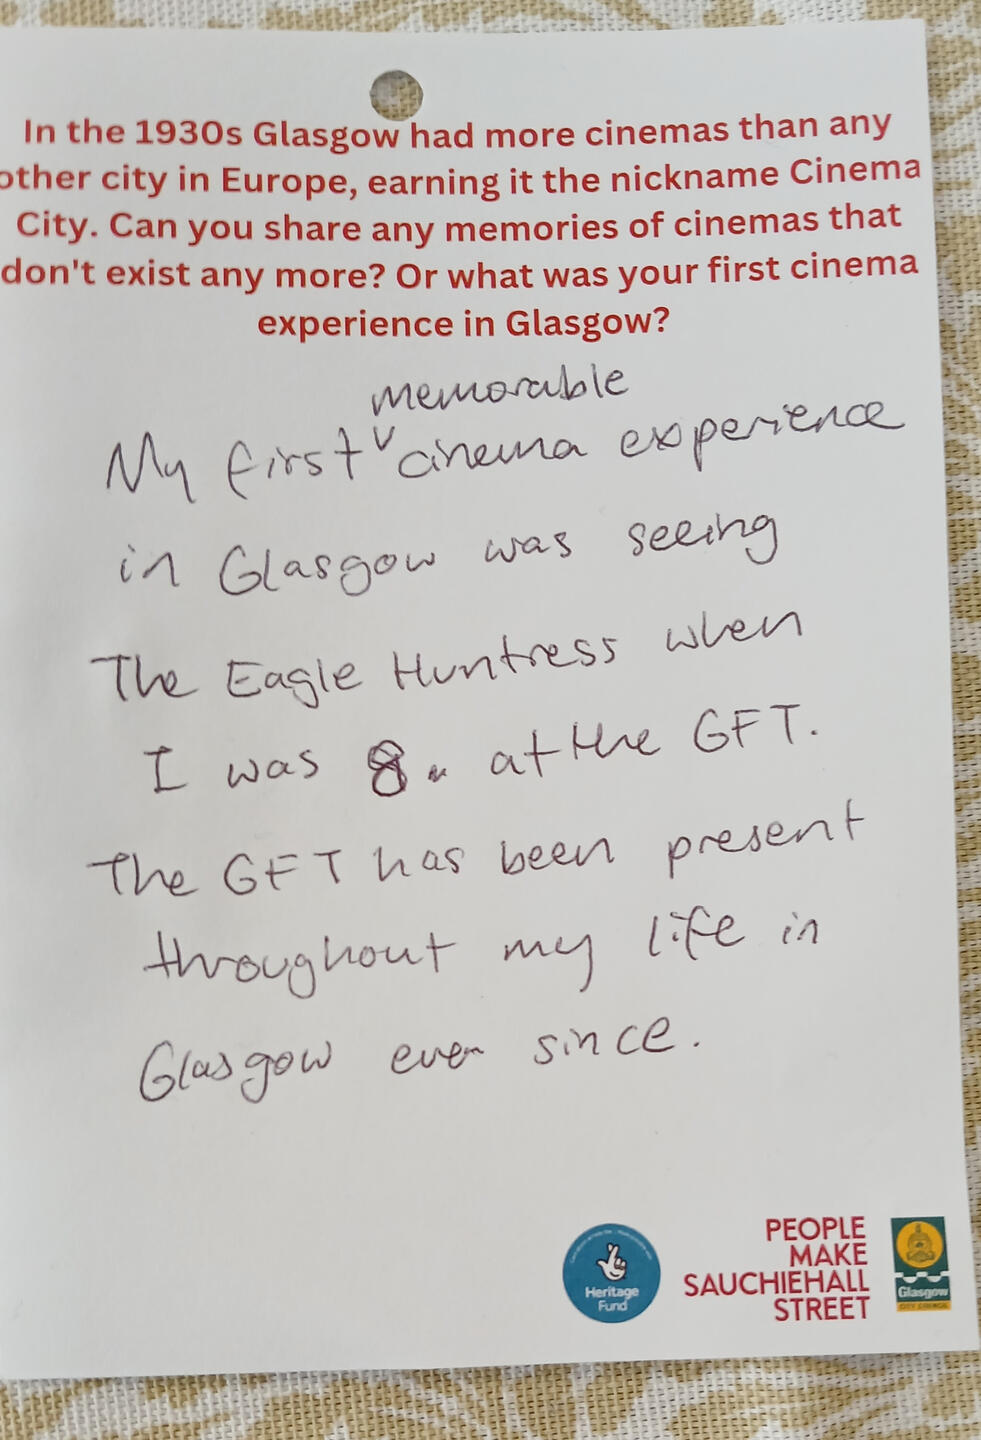 In the 1930s Glasgow had more cinemas than any
other city in Europe, earning it the nickname Cinema
City. Can you share any memories of cinemas that
don't exist any more? Or what was your first cinema
experience in Glasgow?
memorable
My first v cinema experience
in Glasgow was seeing
The Eagle Huntress when
I was 8. at the GFT.
The GFT has been present
throughout my life in
Glasgow ever since.
Heritage
Fund
PEOPLE
MAKE
SAUCHIEHALL
STREET
Glasgow
CITY COUNCIL